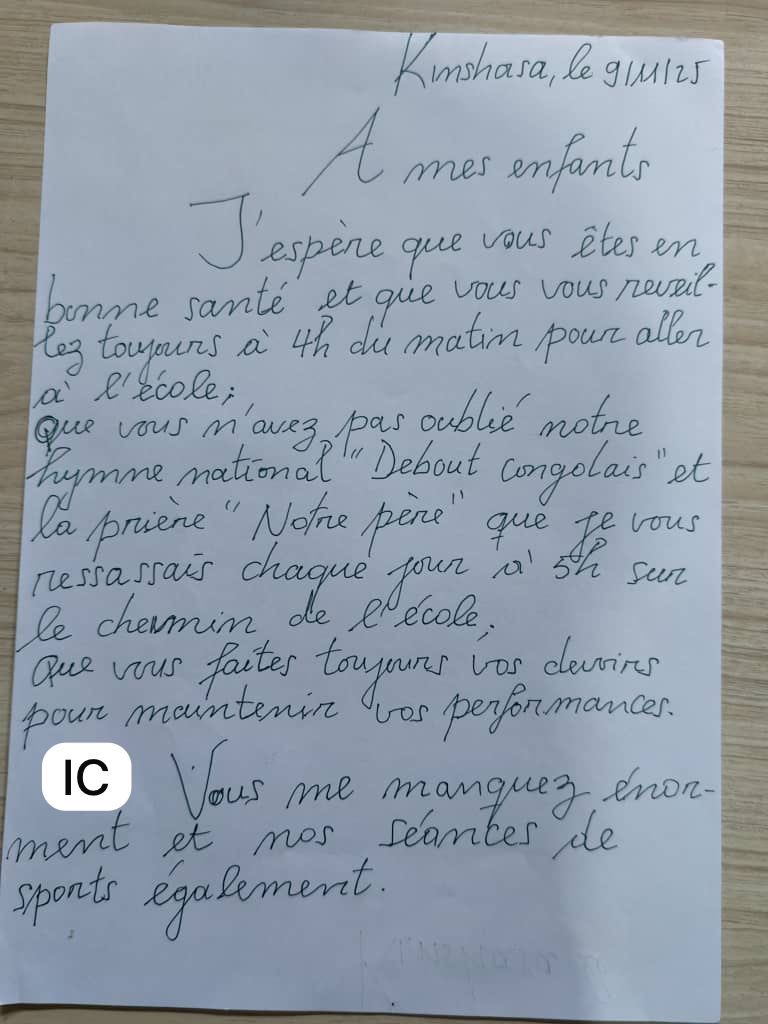 Kinshasa, le 9/11/25
A mes enfants
J'espère que vous êtes en
bonne santé et que vous vous reveil-
lez toujours à 4h du matin pour aller
à l'école;
Que vous n'avez pas oublié notre
hymne national "Debout congolais" et
la prière "Notre père" que je vous
ressassais chaque jour à 5h sur
le chemin de l'école;
Que vous faites toujours vos devoirs
pour maintenir vos performances.
IC
Vous me manquez énor-
ment et nos séances de
sports également.